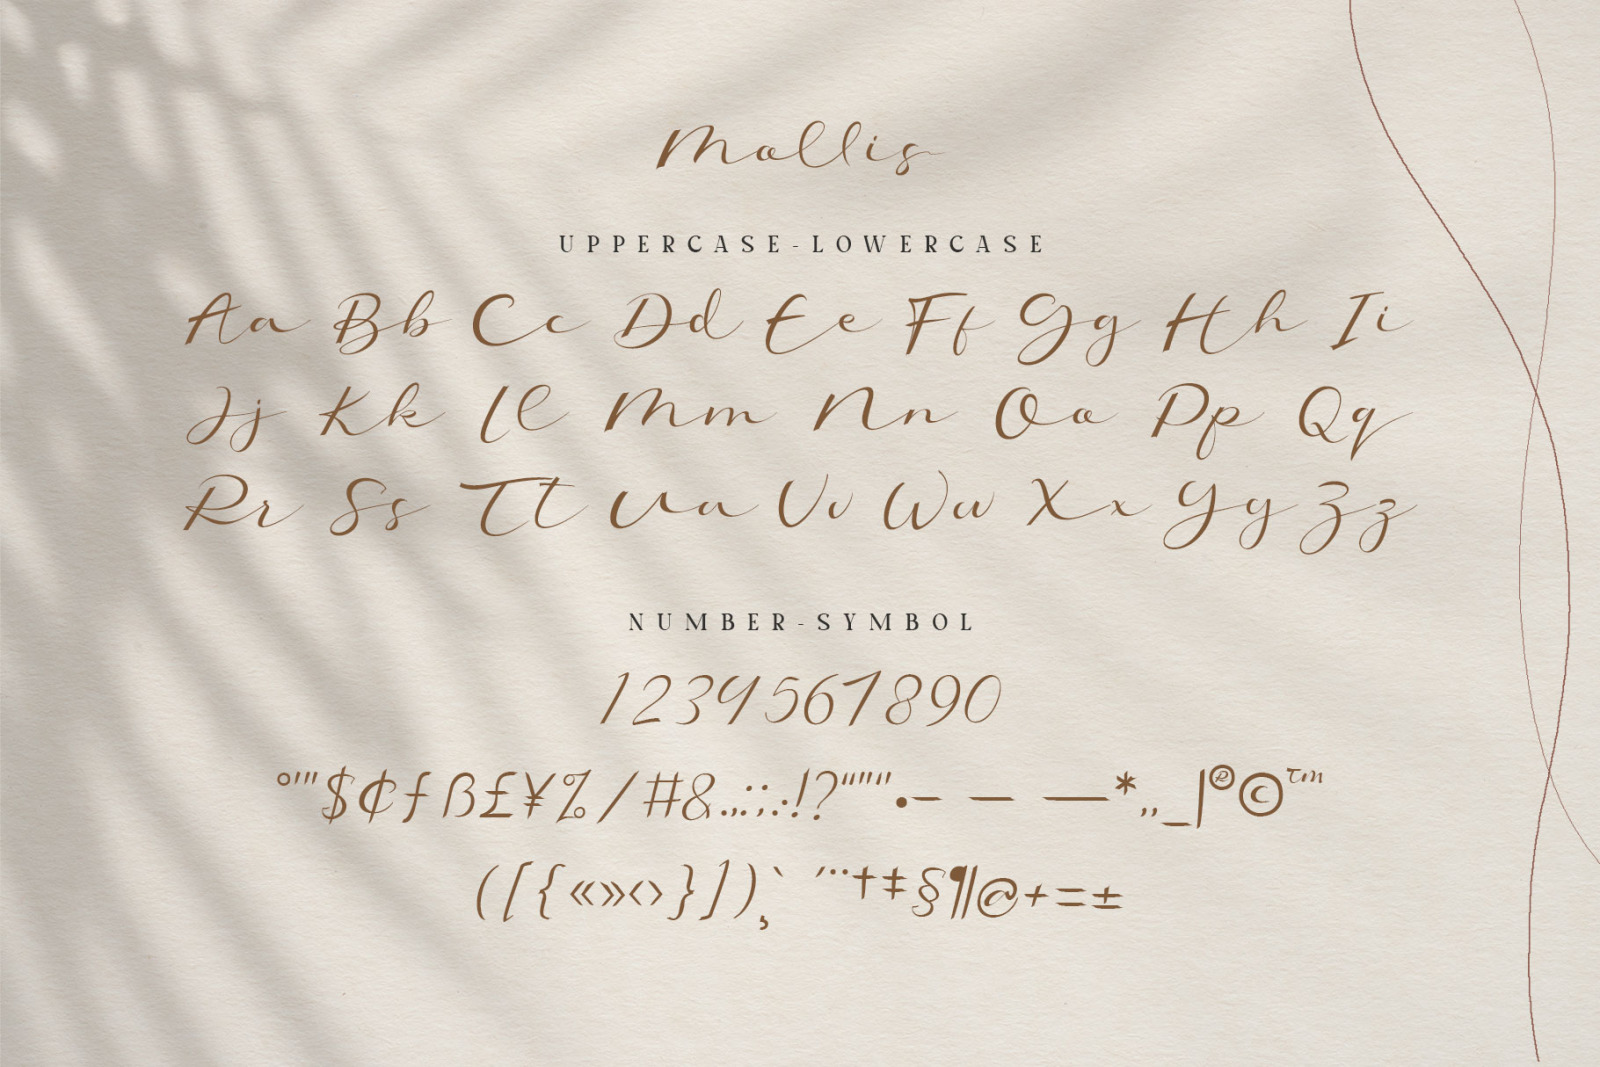 Mollis
UPPERCASE-LOWERCASE
Aa Bb Cc Dd Ee Ff Gg Hh Ii
Jj Kk Ll Mm Nn Oo Pp Qq
Rr Ss Tt Uu Vv Ww Xx Yy Zz
NUMBER-SYMBOL
1234567890
°'"$¢ƒß£¥%/#&…:;,.!?“”‘’•- – —*‚„_|®©™
([{«»‹›}])¸` ´¨†‡§¶@+=±